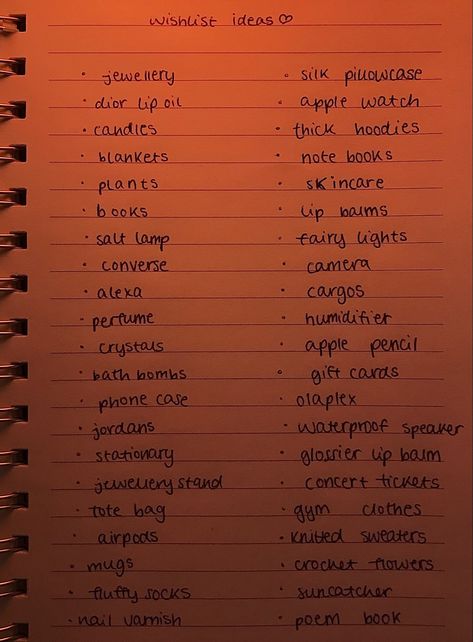 wishlist ideas ♡
· jewellery
· dior lip oil
· candles
· blankets
· plants
· books
· salt lamp
· converse
· alexa
· perfume
· crystals
· bath bombs
· phone case
· jordans
· stationary
· jewellery stand
· tote bag
· airpods
· mugs
· fluffy socks
· nail varnish
· silk pillowcase
· apple watch
· thick hoodies
· note books
· skincare
· lip balms
· fairy lights
· camera
· cargos
· humidifier
· apple pencil
· gift cards
· olaplex
· waterproof speaker
· glossier lip balm
· concert tickets
· gym clothes
· knitted sweaters
· crochet flowers
· suncatcher
· poem book